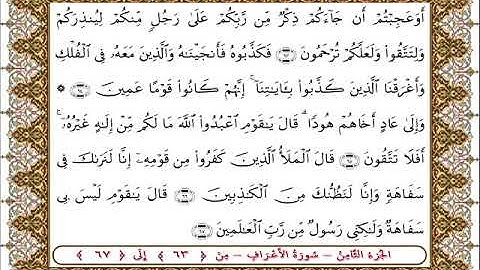 أَوَعَجِبْتُمْ أَن جَآءَكُمْ ذِكْرٌ مِّن رَّبِّكُمْ عَلَىٰ رَجُلٍ مِّنكُمْ لِيُنذِرَكُمْ
وَلِتَتَّقُوا۟ وَلَعَلَّكُمْ تُرْحَمُونَ ﴿٦٣﴾ فَكَذَّبُوهُ فَأَنجَيْنَـٰهُ وَٱلَّذِينَ مَعَهُۥ فِى ٱلْفُلْكِ
وَأَغْرَقْنَا ٱلَّذِينَ كَذَّبُوا۟ بِـَٔايَـٰتِنَآ ۚ إِنَّهُمْ كَانُوا۟ قَوْمًا عَمِينَ ﴿٦٤﴾ ۞
وَإِلَىٰ عَادٍ أَخَاهُمْ هُودًا ۗ قَالَ يَـٰقَوْمِ ٱعْبُدُوا۟ ٱللَّهَ مَا لَكُم مِّنْ إِلَـٰهٍ غَيْرُهُۥٓ ۚ
أَفَلَا تَتَّقُونَ ﴿٦٥﴾ قَالَ ٱلْمَلَأُ ٱلَّذِينَ كَفَرُوا۟ مِن قَوْمِهِۦٓ إِنَّا لَنَرَىٰكَ فِى
سَفَاهَةٍ وَإِنَّا لَنَظُنُّكَ مِنَ ٱلْكَـٰذِبِينَ ﴿٦٦﴾ قَالَ يَـٰقَوْمِ لَيْسَ بِى
سَفَاهَةٌ وَلَـٰكِنِّى رَسُولٌ مِّن رَّبِّ ٱلْعَـٰلَمِينَ ﴿٦٧﴾
الجزء الثامن – سورة الأعراف – من ﴿ ٦٣ ﴾ إلى ﴿ ٦٧ ﴾